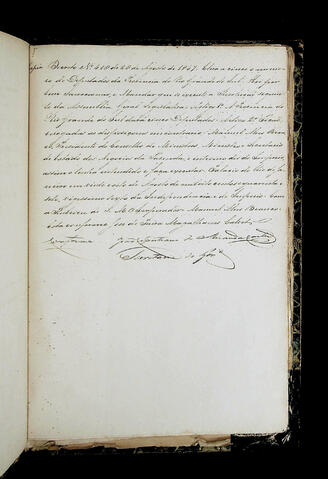 Copia Decreto Nº 418 de 28 de Agosto de 1847. Eleva a cinco o numero
de Deputados da Provincia do Rio Grande do Sul. Hei por
bem Sanccionar, e Mandar que se execute a Resolução seguinte
da Assembléa Geral Legislativa. Artigo 1º A Provincia do
Rio Grande do Sul dará cinco Deputados. Artigo 2º Ficão
revogadas as disposições em contrario. Manoel Alves Bran
co, do Conselho de Ministros, Ministro e Secretario
de Estado dos Negocios da Fazenda, e interino dos do Imperio,
assim o tenha entendido e faça executar. Palacio do Rio de Ja
neiro em vinte oito de Agosto de mil oito centos quarenta e
sete, vigesimo sexto da Independencia e do Imperio. Com
a Rubrica de S. M. O Imperador. Manoel Alves Branco.
Está conforme. José de Magalhaens
Conforme